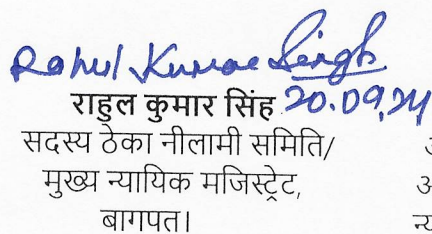 Rahul Kumar Singh
राहुल कुमार सिंह 20.09.24
सदस्य ठेका नीलामी समिति/
मुख्य न्यायिक मजिस्ट्रेट,
बागपत।